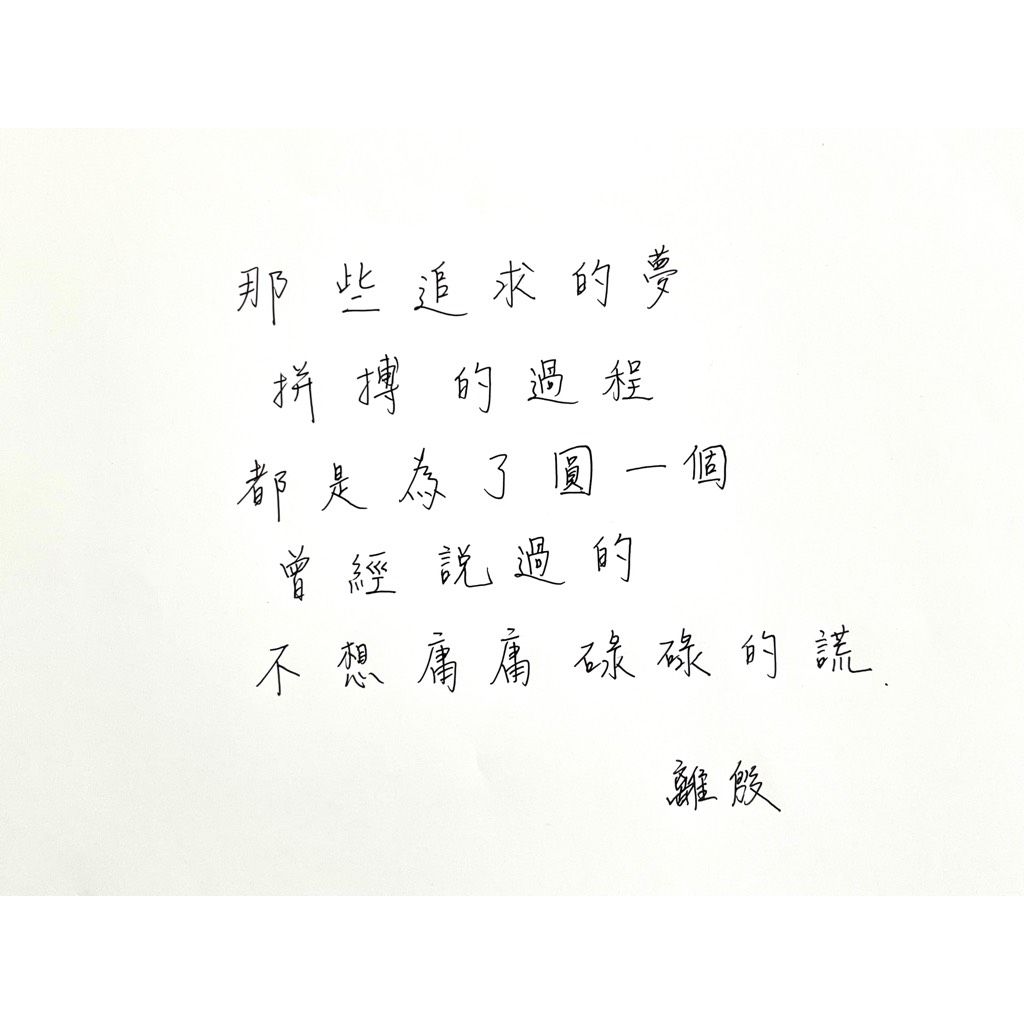 那些追求的夢
拼搏的過程
都是為了圓一個
曾經説過的
不想庸庸碌碌的謊.
離殷